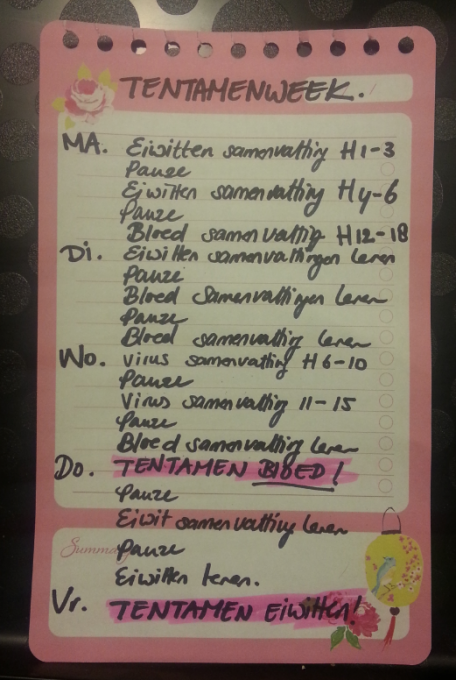 TENTAMENWEEK.
MA. Eiwitten samenvatting H1-3
Pauze
Eiwitten samenvatting H4-6
Pauze
Bloed samenvattig H12-18
Di. Eiwitten samenvattingen leren
Pauze
Bloed Samenvattingen leren
Pauze
Bloed samenvatting leren
Wo. virus samenvatting H6-10
Pauze
Virus samenvatting 11-15
Pauze
Bloed samenvatting leren
Do. TENTAMEN BLOED!
Pauze
Eiwit samenvatting leren
Summary
Pauze
Eiwitten leren.
Vr. TENTAMEN Eiwitten!